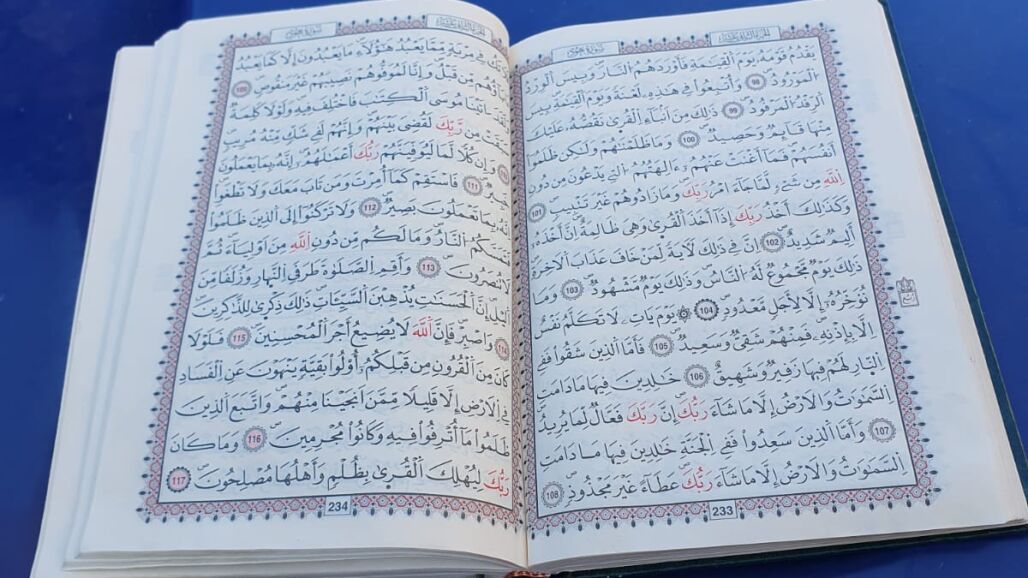 سورة هود
الجزء الثاني عشر
يقدم قومه يوم القيمة فأوردهم النار وبيس الورد
المورود 98 وأتبعوا في هذه لعنة ويوم القيمة بيس
الرفد المرفود 99 ذلك من أنباء القرى نقصه عليك
منها قايم وحصيد 100 وما ظلمنهم ولكن ظلموا
أنفسهم فما أغنت عنهم ءالهتهم التي يدعون من دون
الله من شيء لما جاء امر ربك وما زادوهم غير تتبيب 101
وكذلك أخذ ربك إذا أخذ القرى وهي ظالمة ان أخذه
أليم شديد 102 إن في ذلك لآية لمن خاف عذاب الآخرة
ذلك يوم مجموع له الناس وذلك يوم مشهود 103 وما
نوخره إلا لأجل معدود 104 يوم يات لا تكلم نفس
الا بإذنه فمنهم شقي وسعيد 105 فأما الذين شقوا ففي
النار لهم فيها زفير وشهيق 106 خلدين فيها ما دامت
السموت والارض إلا ما شاء ربك إن ربك فعال لما يريد 107
وأما الذين سعدوا ففي الجنة خلدين فيها ما دامت
السموت والارض إلا ما شاء ربك عطاء غير مجذوذ 108
233
الجزء الثاني عشر
سورة هود
في مرية مما يعبد هؤلاء ما يعبدون إلا كما يعبد
من قبل وإنا لموفوهم نصيبهم غير منقوص 109
ءاتينا موسى الكتب فاختلف فيه ولولا كلمة
سبقت من ربك لقضي بينهم وإنهم لفي شك منه مريب
110 وإن كلا لما ليوفينهم ربك أعملهم إنه بما يعملون
خبير 111 فاستقم كما أمرت ومن تاب معك ولا تطغوا
إنه بما تعملون بصير 112 ولا تركنوا إلى الذين ظلموا
فتمسكم النار وما لكم من دون الله من اولياء ثم
لا تنصرون 113 وأقم الصلوة طرفي النهار وزلفا من
اليل إن الحسنت يذهبن السيئات ذلك ذكرى للذكرين
114 واصبر فإن الله لا يضيع أجر المحسنين 115 فلولا
كان من القرون من قبلكم أولوا بقية ينهون عن الفساد
في الارض إلا قليلا ممن أنجينا منهم واتبع الذين
ظلموا ما أترفوا فيه وكانوا مجرمين 116 وما كان
ربك ليهلك القرى بظلم وأهلها مصلحون 117
234